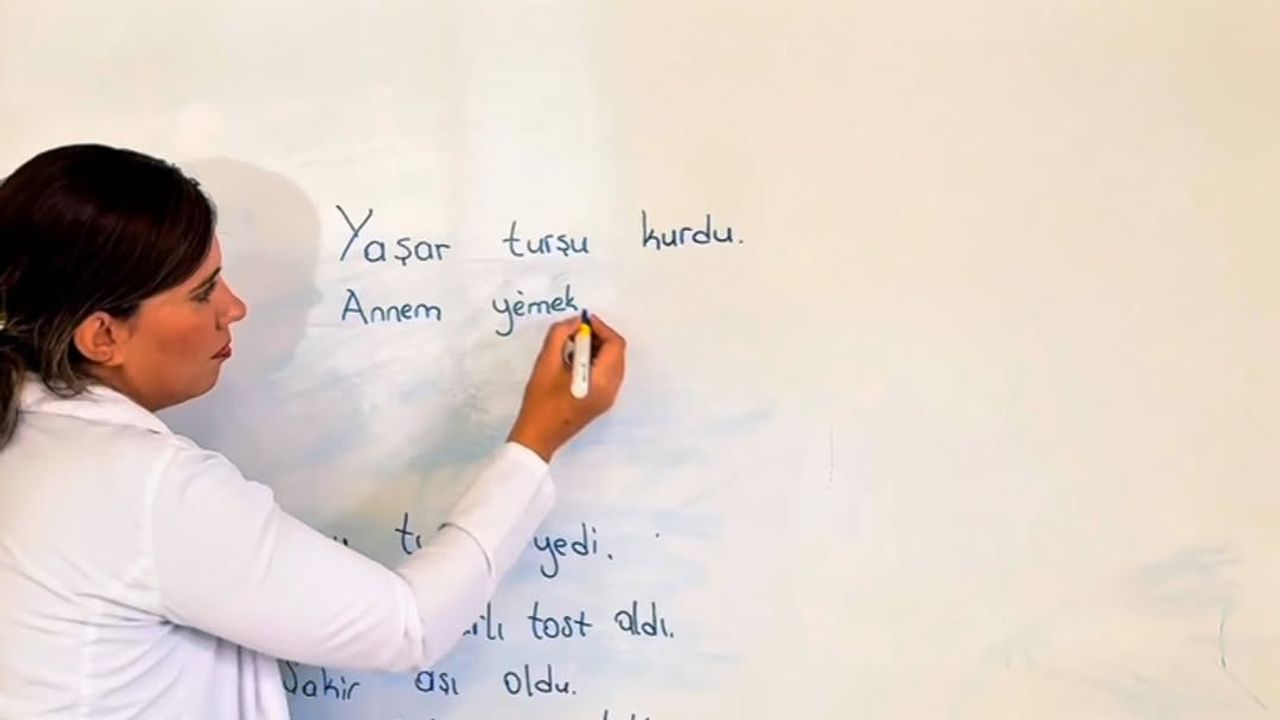 Yaşar turşu kurdu.
Annem yemek
yedi.
tost aldı.
Şakir aşı oldu.